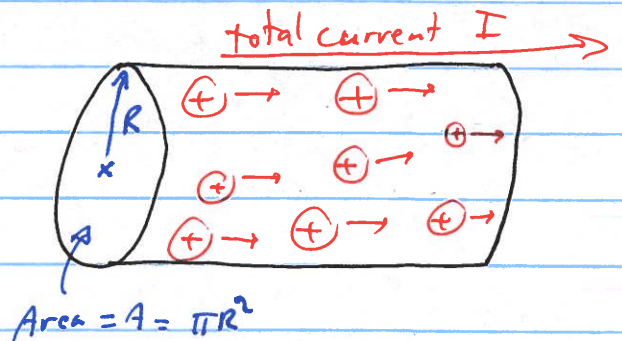 total current I
+ +
R +
+ +
+ + +
x
Area = A = πR²